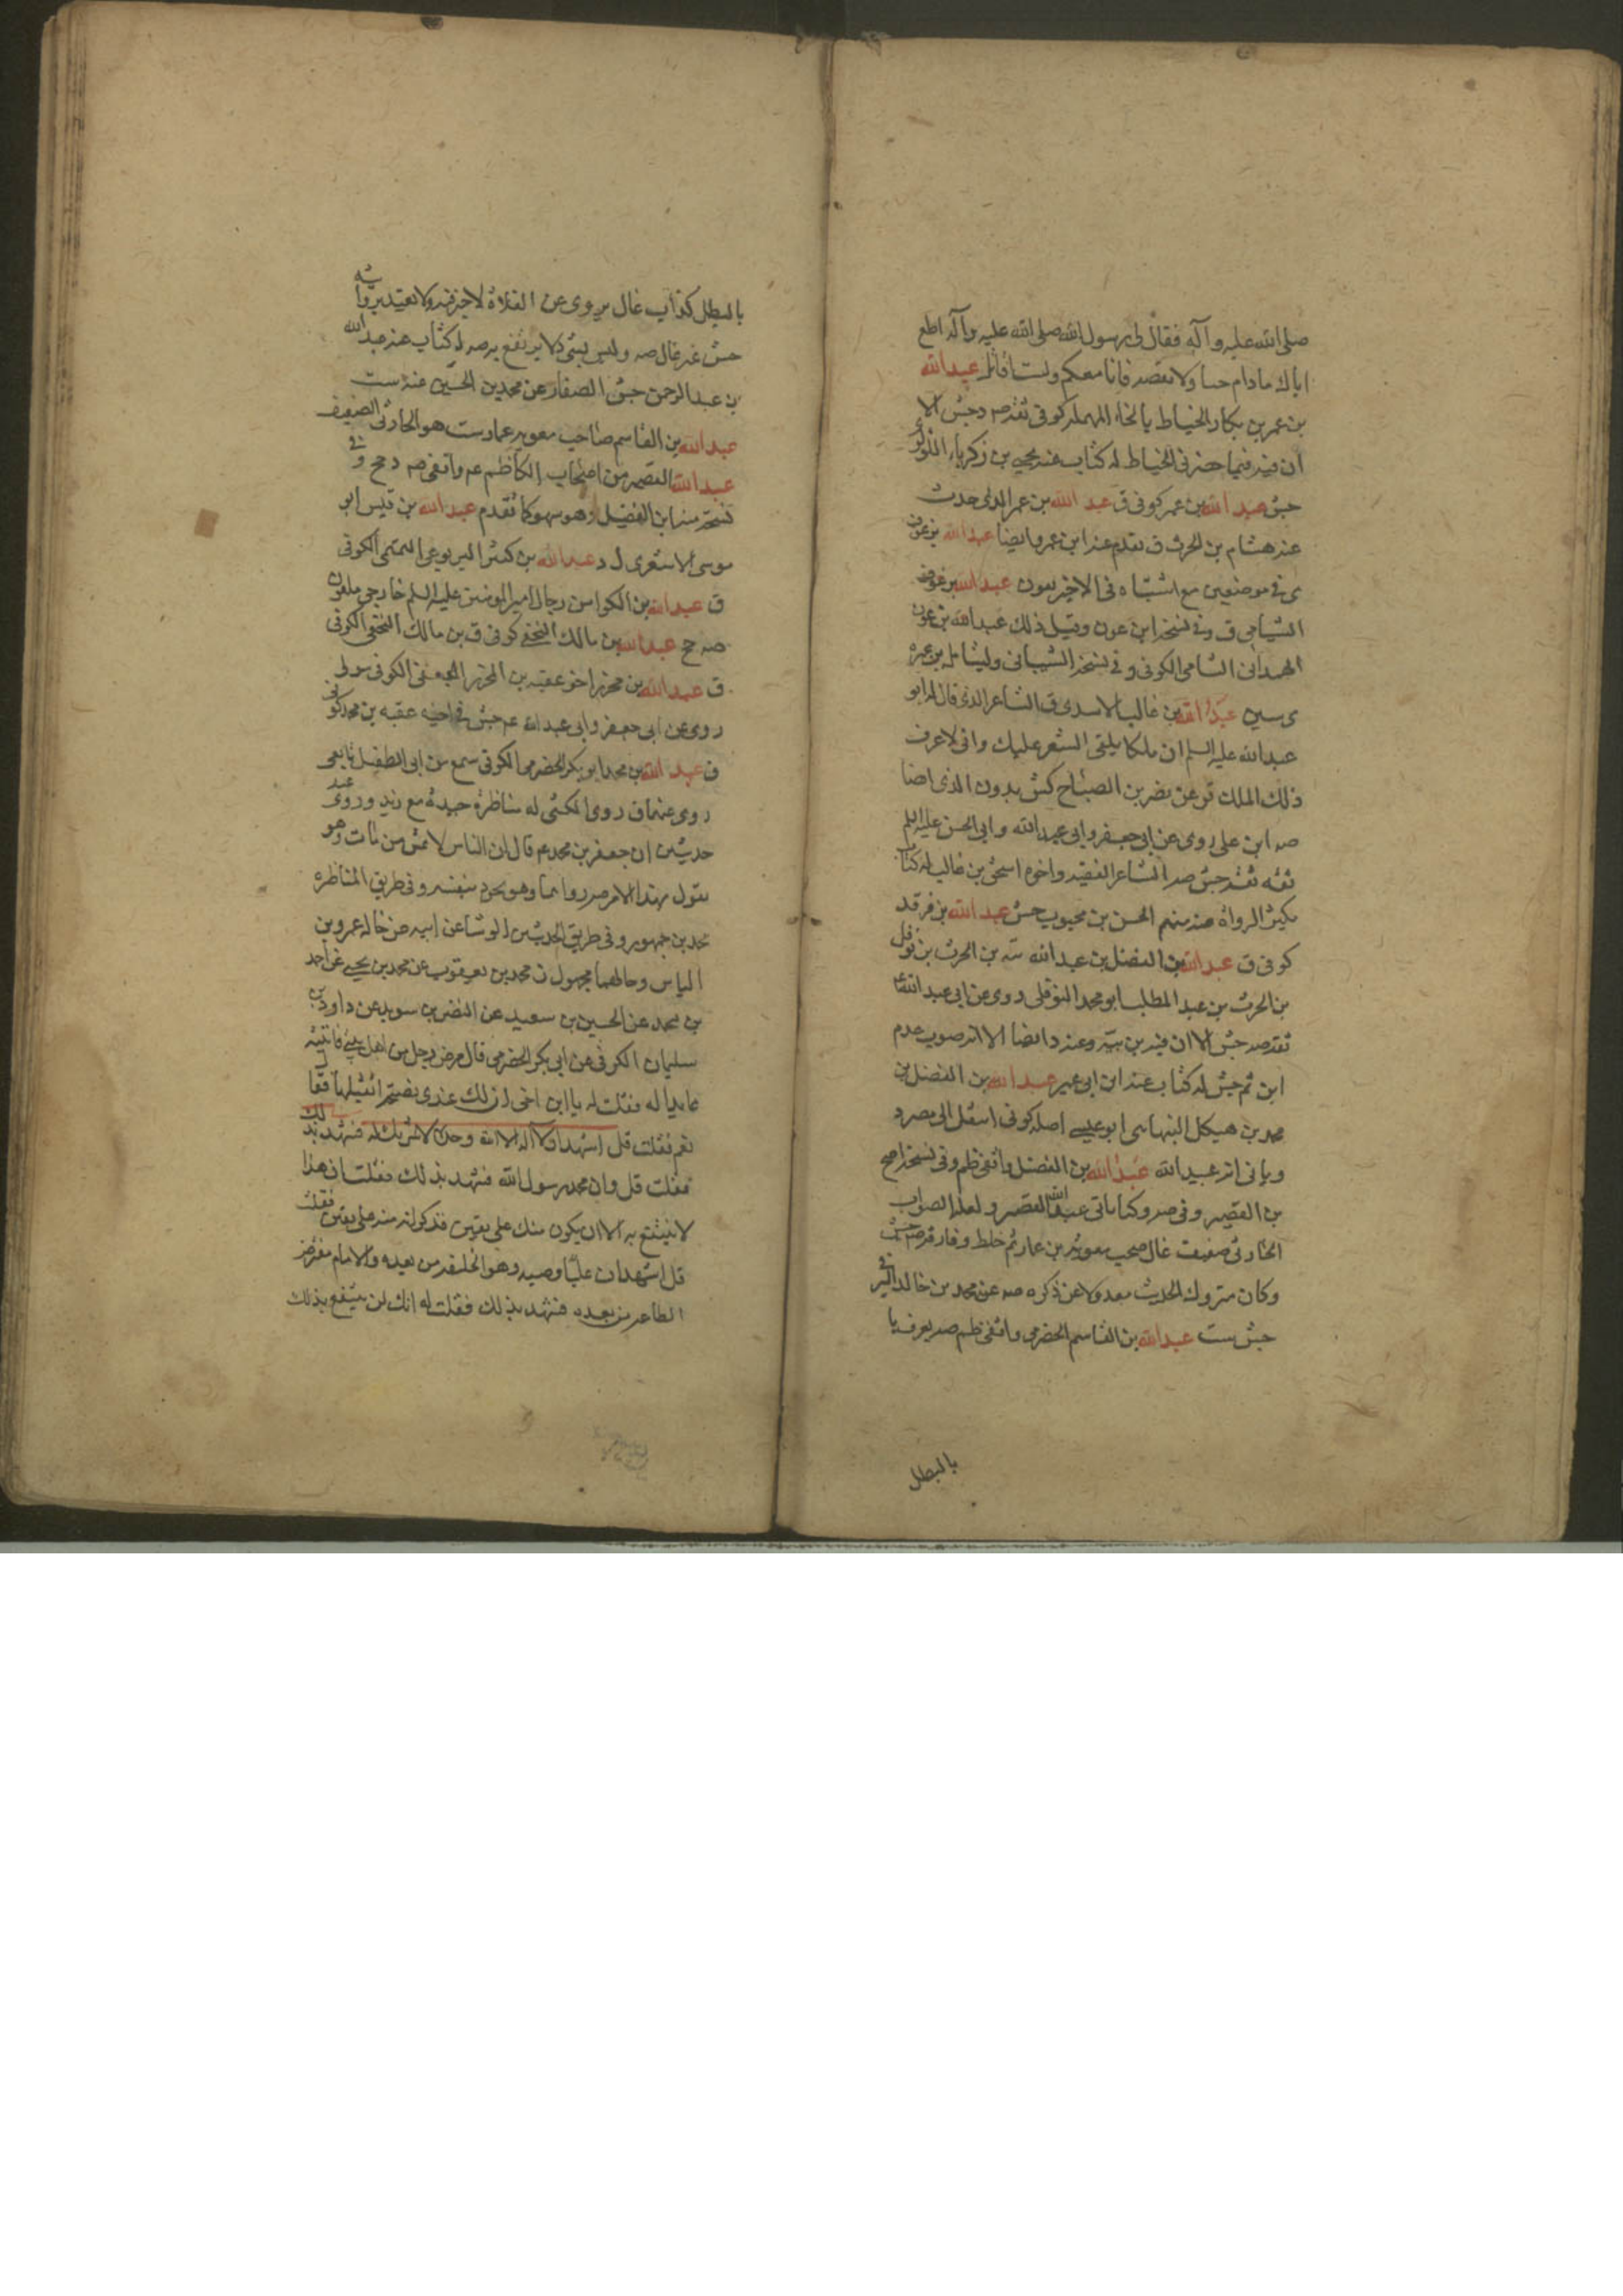 صلى الله عليه وآله فقال لى رسول الله صلى الله عليه وآله اطع
اباك مادام حيا ولا تعصه فانا معكم ولست اقاتل عبد الله
بن عمر بن بكار الخياط بالخاء المهملة كوفى ثقة صه وجش الا
ان فيه فيما حنه فى الخياط له كتاب عنه يحيى بن زكريا اللؤلؤى
جش عبد الله بن عمر كوفى ق عبد الله بن عمر الدلى حدث
عنه هشام بن الحرث ق تقدم عند ابن عمرو ايضا عبد الله بن عوف
ى فى موضعين مع اشتباه فى الاخير بعون عبد الله بن عوف
الشيامى ق وفى نسخة ابن عون وقيل ذلك عبد الله بن عون
الهمدانى الشامى الكوفى وفى نسخة الشيبانى
ى سين عبد الله بن غالب الاسدى ق الشاعر الذى قال له ابو
عبد الله عليه السلم ان ملكا يلقى الشعر عليك وانى لاعرف
ذلك الملك قر عن نصر بن الصباح كش بدون الذى ايضا
صه ابن على روى عن ابى جعفر وابى عبد الله وابى الحسن عليه السلم
ثقه ثقه جش صه الشاعر الفقيه واخوه اسحق بن غالب له كتاب
يكثر الرواة عنه منهم الحسن بن محبوب جش عبد الله بن فرقد
كوفى ق عبد الله بن الفضل بن عبد الله بن الحرث بن نوفل
بن الحرث بن عبد المطلب ابو محمد النوفلى روى عن ابى عبد الله ع
ثقه صه جش الا ان فيه بن ببه وعند د ايضا الا انه صوب عدم
ابن ثم جش له كتاب عنه ابن ابى عمير عبد الله بن الفضل بن
محمد بن هيكل النبهانى ابو عيسى اصله كوفى انتقل الى مصر د
وياتى انه عبيد الله عبد الله بن الفضل واقفى ظم وفى نسخة اصح
بن القصير وفى صه وكما ياتى عبد الله القصير ولعله الصواب
الحارثى ضعيف غال صحب معوية بن عمار ثم خلط وفارقه صه جش
وكان متروك الحديث معدولا عن ذكره صه عنه محمد بن خالد البرقى
جش ست عبد الله بن القاسم الحضرمى واقفى ظم صه يعرف با
بالبطل
بالبطل كذاب غال يروى عن الغلاة لا خير فيه ولا يعتد بروايته
جش غير غال صه وليس بشئ ولا يرتفع به صه له كتاب عنه عبد الله
بن عبد الرحمن جش الصفار عن محمد بن الحسين عنه ست
عبد الله بن القاسم صاحب معويه عمار ست هو الحارثى الضعيف
عبد الله القصير من اصحاب الكاظم عم واقفى صه د جح وفى
نسخة منه ابن الفضيل وهو سهو كما تقدم عبد الله بن قيس ابو
موسى الاشعرى ل د عبد الله بن كثير اليربوعى التميمى الكوفى
ق عبد الله بن الكوا من رجال امير المومنين عليه السلم خارجى ملعون
صه جح عبد الله بن مالك النخعى كوفى ق بن مالك النخعى الكوفى
ق عبد الله بن محرز اخو عقبه بن المحرز الجعفى الكوفى مولى
روى عن ابى جعفر وابى عبد الله عم جش فى اخيه عقبه بن محمد كوفى
ق عبد الله بن محمد ابو بكر الحضرمى الكوفى سمع من ابى الطفيل تابعى
روى عنهما ق روى الكشى له مناظرة جيدة مع زيد وروى عنه
حديثين ان جعفر بن محمد عم قال ان النار لا تمس من مات وهو
يقول بهذا الامر صه رواهما وهو يجود بنفسه وفى طريق المناظره
محمد بن جمهور وفى طريق الحديثين الوشا عن ابيه عن خاله عمرو بن
الياس وحالهما مجهول ن محمد بن يعقوب عن محمد بن يحيى عن احمد
بن محمد عن الحسين بن سعيد عن النضر بن سويد عن داود بن
سليمان الكوفى عن ابى بكر الحضرمى قال مرض رجل من اهل بيتى فاتيته
عايدا له فقلت له يا ابن اخى ان لك عندى نصيحة اتقبلها فقال
نعم فقلت قل اشهد ان لا اله الا الله وحده لا شريك له فشهد بذلك
فقلت قل وان محمد رسول الله فشهد بذلك فقلت ان هذا
لا ينتفع به الا ان يكون منك على يقين فذكر انه منه على يقين فقلت
قل اشهد ان عليا وصيه وهو الخليفه من بعده والامام مفترض
الطاعه من بعده فشهد بذلك فقلت له انك لن ينتفع بذلك